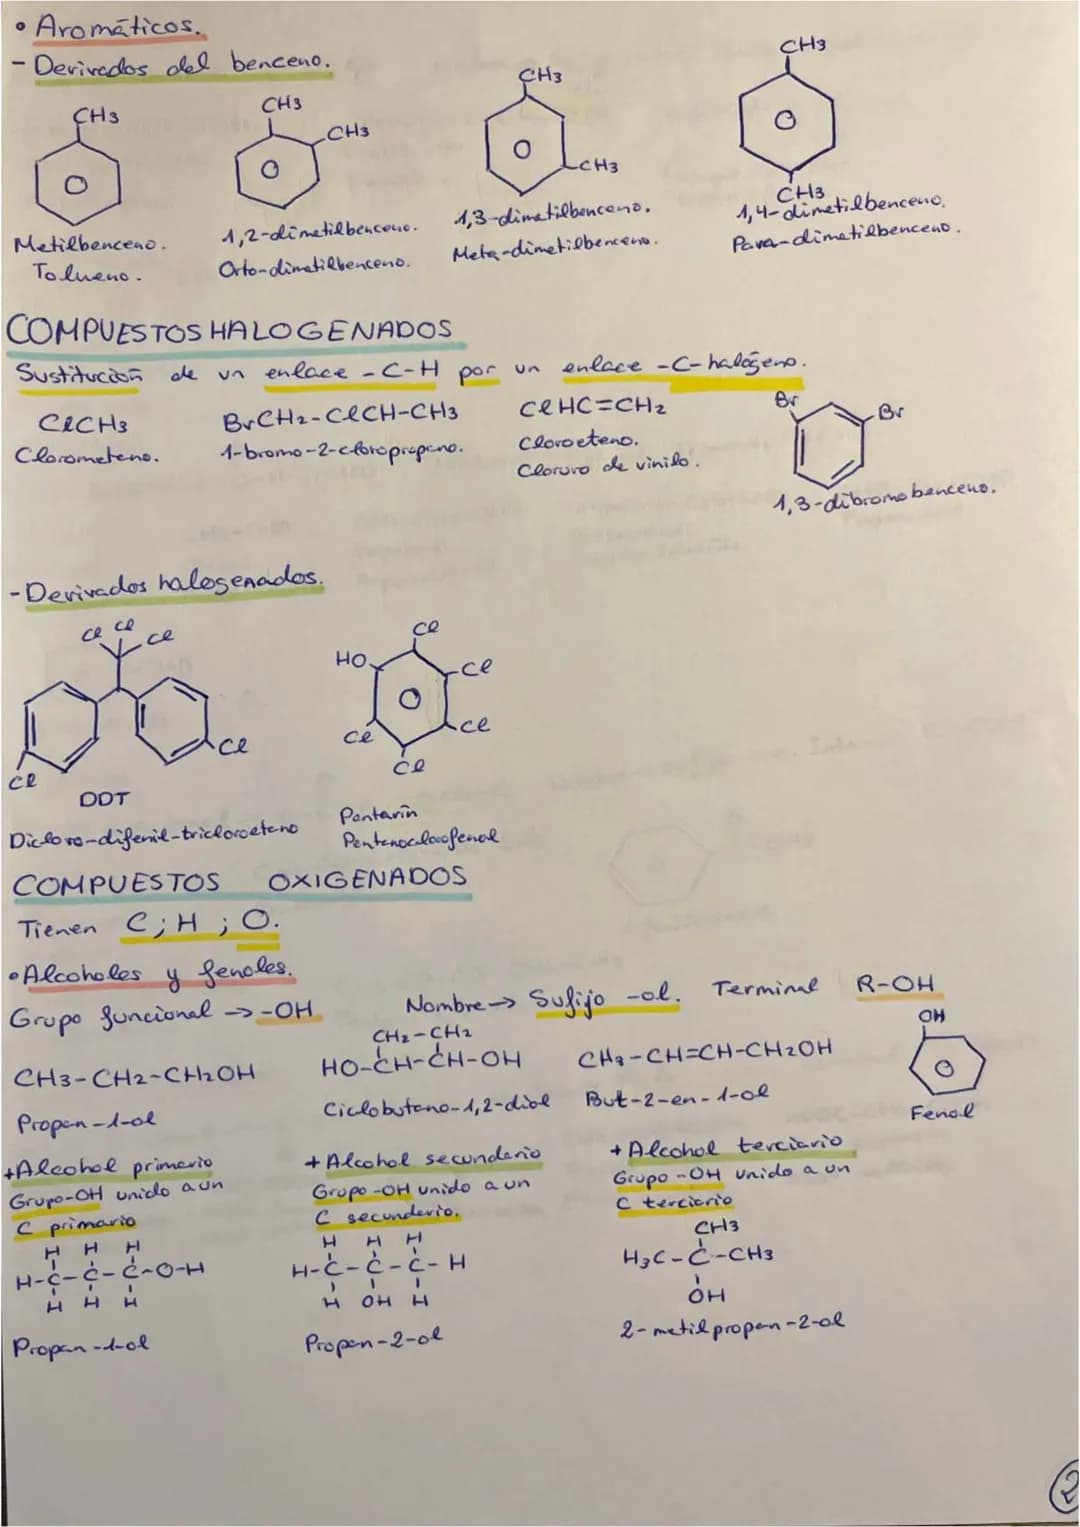 • Aromáticos.
- Derivados del benceno.
CH3
CH3
CH3
CH3
CH3
CH3
CH3
Metilbenceno.
Tolueno.
1,2-dimetilbenceno.
Orto-dimetilbenceno.
1,3-dimetilbenceno.
Meta-dimetilbenceno.
1,4-dimetilbenceno.
Para-dimetilbenceno.
COMPUESTOS HALOGENADOS
Sustitución de un enlace -C-H por un enlace -C-halógeno.
ClCH3
Clorometano.
BrCH2-ClCH-CH3
1-bromo-2-cloropropano.
ClHC=CH2
Cloroeteno.
Cloruro de vinilo.
Br
Br
1,3-dibromobenceno.
- Derivados halogenados.
Cl Cl Cl
Cl
Cl
DDT
Dicloro-difenil-tricloroetano
HO
Cl
Cl
Cl
Cl
Cl
Pentarín
Pentanoclorofenol
COMPUESTOS OXIGENADOS
Tienen C; H; O.
• Alcoholes y fenoles.
Grupo funcional → -OH
Nombre → Sufijo -ol. Terminal R-OH
CH3-CH2-CH2OH
Propan-1-ol
CH2-CH2
HO-CH-CH-OH
Ciclobutano-1,2-diol
CH3-CH=CH-CH2OH
But-2-en-1-ol
OH
Fenol
+ Alcohol primario
Grupo-OH unido a un
C primario
H H H
H-C-C-C-O-H
H H H
Propan-1-ol
+ Alcohol secundario
Grupo-OH unido a un
C secundario.
H H H
H-C-C-C-H
H OH H
Propan-2-ol
+ Alcohol terciario
Grupo-OH unido a un
C terciario
CH3
H3C-C-CH3
OH
2-metilpropan-2-ol
2